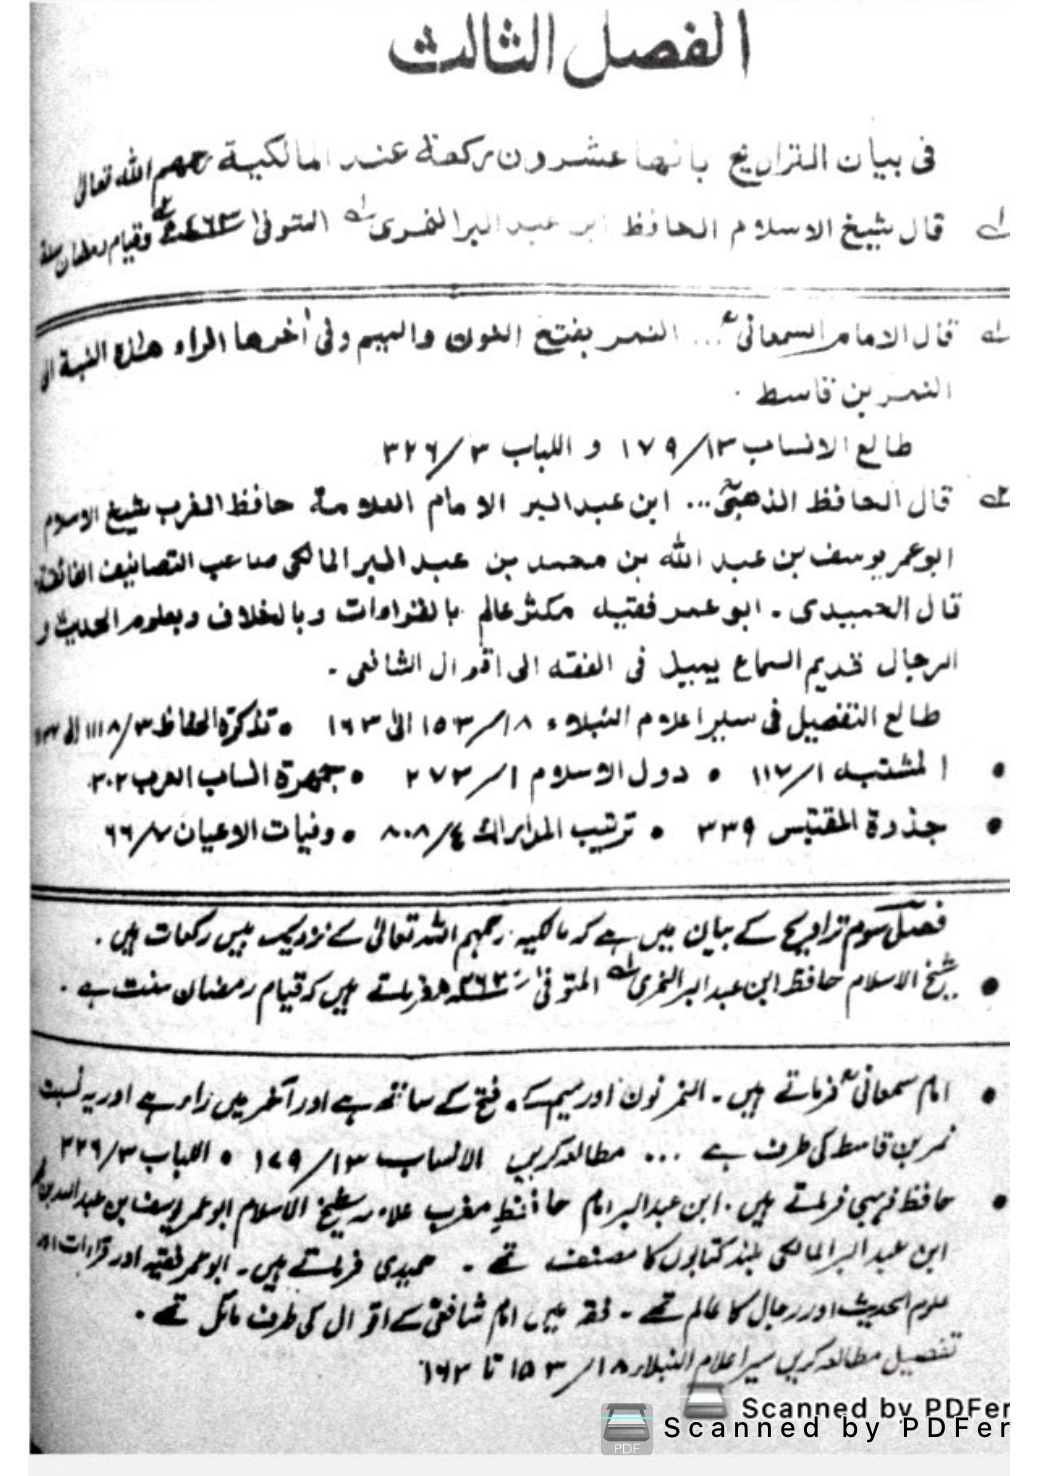 الفصل الثالث
فى بيان التراويح بانها عشرون ركعة عند المالكية رحمهم الله تعالى
قال شيخ الاسلام الحافظ ابن عبد البر النمرى المتوفى ٤٦٣ وقيام رمضان سنة
قال الامام السمعانى ... النمر بفتح النون والميم وفى أخرها الراء هذه النسبة الى
النمر بن قاسط .
طالع الانساب ١٣/١٧٩ و اللباب ٣/٣٢٦
قال الحافظ الذهبى ... ابن عبد البر الامام العلامة حافظ المغرب شيخ الاسلام
ابو عمر يوسف بن عبد الله بن محمد بن عبد البر المالكى صاحب التصانيف الفائقة
قال الحميدى ۔ ابو عمر فقيه مكثر عالم بالقراءات وبالخلاف وبعلوم الحديث و
الرجال قديم السماع يميل فى الفقه الى اقوال الشافعى ۔
طالع التفصيل فى سير اعلام النبلاء ١٨/١٥٣ الى ١٦٣ • تذكرة الحفاظ ٣/١١١٨ الى
• المشتبه ١/١١٧ • دول الاسلام ١/٢٧٣ • جمهرة انساب العرب ٣٠٢
• جذوة المقتبس ٣٣٩ • ترتيب المدارك ٤/٨٠٨ • وفيات الاعيان ٧/٦٦
فصل سوم تراویح کے بیان میں ہے کہ مالکیہ رحمہم اللہ تعالیٰ کے نزدیک بیس رکعات ہیں ۔
• شیخ الاسلام حافظ ابن عبد البر النمری المتوفیٰ فرماتے ہیں کہ قیام رمضان سنت ہے ۔
• امام سمعانی فرماتے ہیں ۔ النمر نون اور میم کے فتح کے ساتھ ہے اور آخر میں راء ہے اور یہ نسبت
نمر بن قاسط کی طرف ہے ... مطالعہ کریں الانساب ١٣/١٧٩ • اللباب ٣/٣٢٦
• حافظ ذہبی فرماتے ہیں ۔ ابن عبد البر امام حافظ مغرب علامہ شیخ الاسلام ابو عمر یوسف بن عبد اللہ بن
ابن عبد البر المالکی بلند کتابوں کا مصنف تھے ۔ حمیدی فرماتے ہیں ۔ ابو عمر فقیہ اور قراءات
علوم الحدیث اور رجال کا عالم تھے ۔ فقہ میں امام شافعی کے اقوال کی طرف مائل تھے ۔
تفصیل مطالعہ کریں سیر اعلام النبلاء ١٨/١٥٣ تا ١٦٣
Scanned by PDFer
Scanned by PDFer
PDF